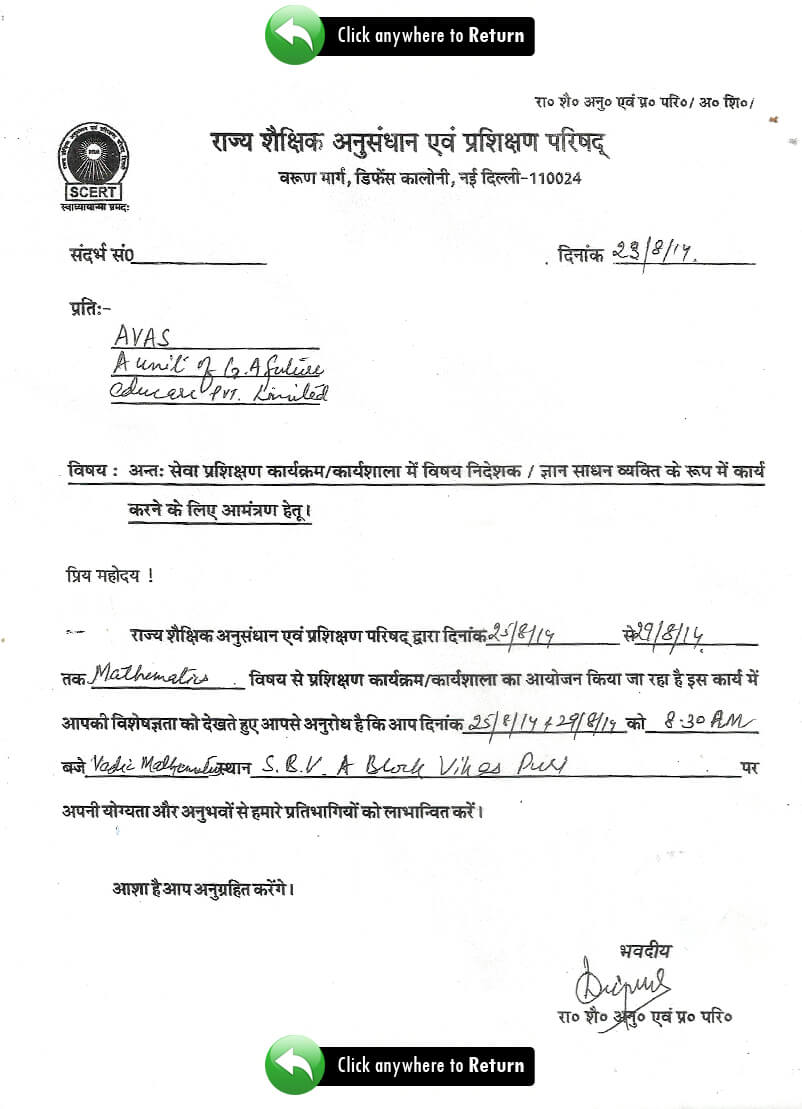 Click anywhere to Return
रा० शै० अनु० एवं प्र० परि०/ अ० शि०/
राज्य शैक्षिक अनुसंधान एवं प्रशिक्षण परिषद्
वरूण मार्ग, डिफेंस कालोनी, नई दिल्ली-110024
SCERT
संदर्भ सं०
दिनांक 23/8/14.
प्रतिः-
AVAS
A unit of G.A future
educare PVT. Limited
विषय : अन्तः सेवा प्रशिक्षण कार्यक्रम/कार्यशाला में विषय निदेशक / ज्ञान साधन व्यक्ति के रूप में कार्य
करने के लिए आमंत्रण हेतू।
प्रिय महोदय !
राज्य शैक्षिक अनुसंधान एवं प्रशिक्षण परिषद् द्वारा दिनांक 25/8/14 से 29/8/14
तक Mathematics विषय से प्रशिक्षण कार्यक्रम/कार्यशाला का आयोजन किया जा रहा है इस कार्य में
आपकी विशेषज्ञता को देखते हुए आपसे अनुरोध है कि आप दिनांक 25/8/14 + 29/8/14 को 8.30 AM
बजे Vadic Mathematics स्थान S.B.V. A Block Vikas Puri पर
अपनी योग्यता और अनुभवों से हमारे प्रतिभागियों को लाभान्वित करें।
आशा है आप अनुग्रहित करेंगे।
भवदीय
रा० शै० अनु० एवं प्र० परि०
Click anywhere to Return